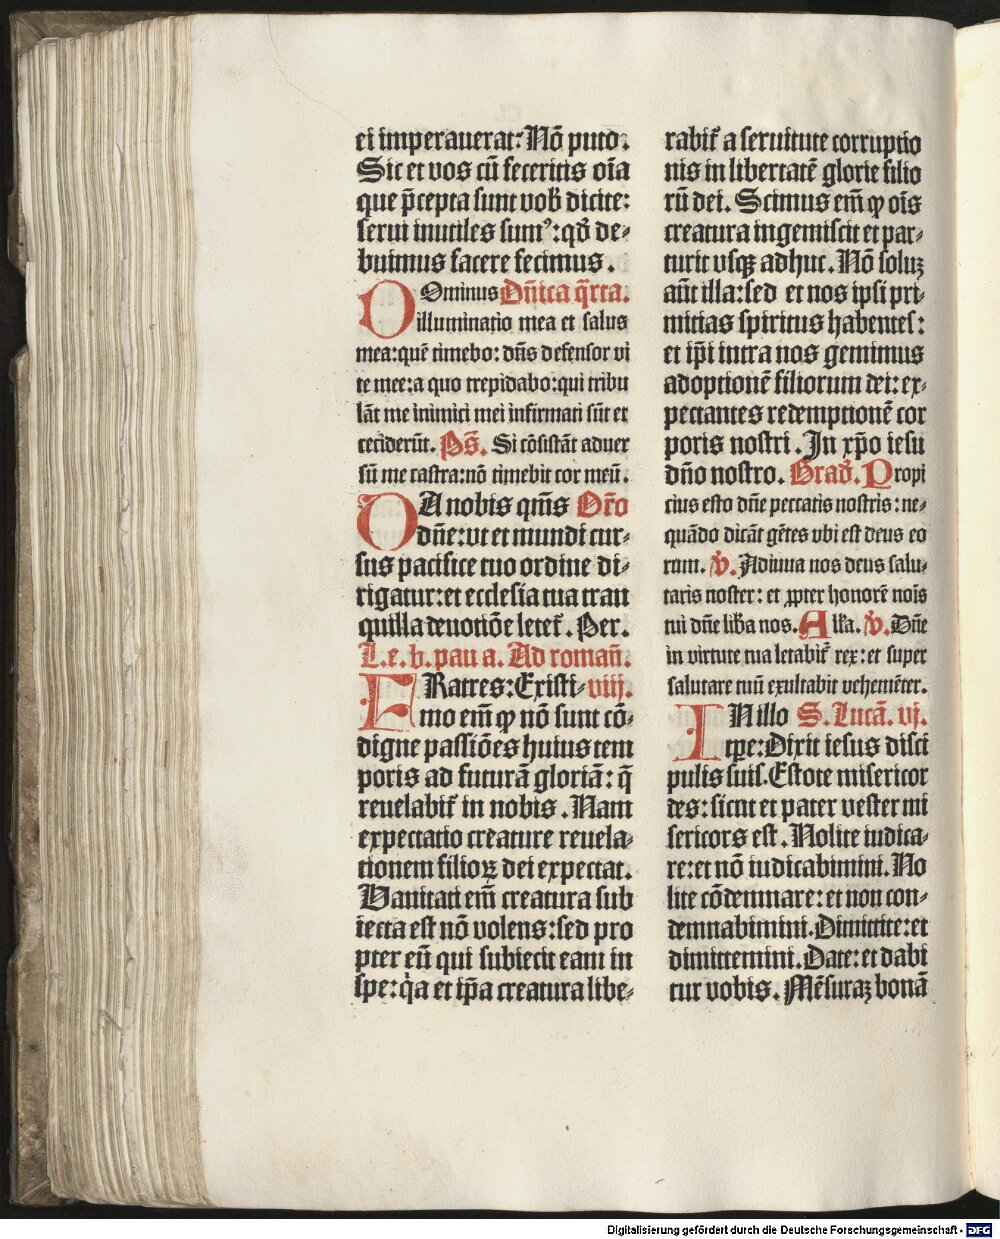 ei imperauerat: Nõ puto.
Sic et vos cũ feceritis oĩa
que p̃cepta sunt vob̃ dicite:
serui inutiles sumꝰ: qđ de⸗
buimus facere fecimus.
DOminus Dñica q̃rta.
illuminatio mea et salus
mea: quẽ timebo: dñs defensor vi
te mee: a quo trepidabo: qui tribu
lãt me inimici mei infirmati sũt et
ceciderũt. Ps̃. Si cõsistãt aduer
sũ me castra: nõ timebit cor meũ.
DA nobis qm̃s Or̃o
dñe: vt et mundi cur⸗
sus pacifice tuo ordine di⸗
rigatur: et ecclesia tua tran
quilla deuotiõe letet᷑. Per.
L. e. b. pau a. Ad romañ.
FRatres: Existi⸗ viij.
mo em̃ ꝙ nõ sunt cõ⸗
digne passiões huius tem
poris ad futurã gloriã: q̃
reuelabit᷑ in nobis. Nam
expectatio creature reuela⸗
tionem filioꝝ dei expectat.
Vanitati em̃ creatura sub
iecta est nõ volens: sed pro
pter eũ qui subiecit eam in
spe: qͥa et ip̃a creatura libe⸗
rabit᷑ a seruitute corruptio
nis in libertatẽ glorie filio
rũ dei. Scimus em̃ ꝙ oĩs
creatura ingemiscit et par⸗
turit vsqꝫ adhuc. Nõ soluꝫ
aũt illa: sed et nos ipsi pri⸗
mitias spiritus habentes:
et ip̃i intra nos gemimus
adoptionẽ filiorum dei: ex⸗
pectantes redemptionẽ cor
poris nostri. In xp̃o iesu
dño nostro. Grad̃. Propi
cius esto dñe peccatis nostris: ne⸗
quãdo dicãt gẽtes vbi est deus eo
rum. ℣. Adiuua nos deus salu⸗
taris noster: et ꝓpter honorẽ noĩs
tui dñe lib̃a nos. All̃a. ℣. Dñe
in virtute tua letabit᷑ rex: et super
salutare tuũ exultabit vehemẽter.
IN illo S. Lucã. vj.
tp̃e: Dixit iesus disci
pulis suis. Estote misericor
des: sicut et pater vester mi
sericors est. Nolite iudica⸗
re: et nõ iudicabimini. No
lite cõdemnare: et non con⸗
demnabimini. Dimittite: et
dimittemini. Date: et dabi
tur vobis. Mẽsuraꝫ bonã
Digitalisierung gefördert durch die Deutsche Forschungsgemeinschaft - DFG